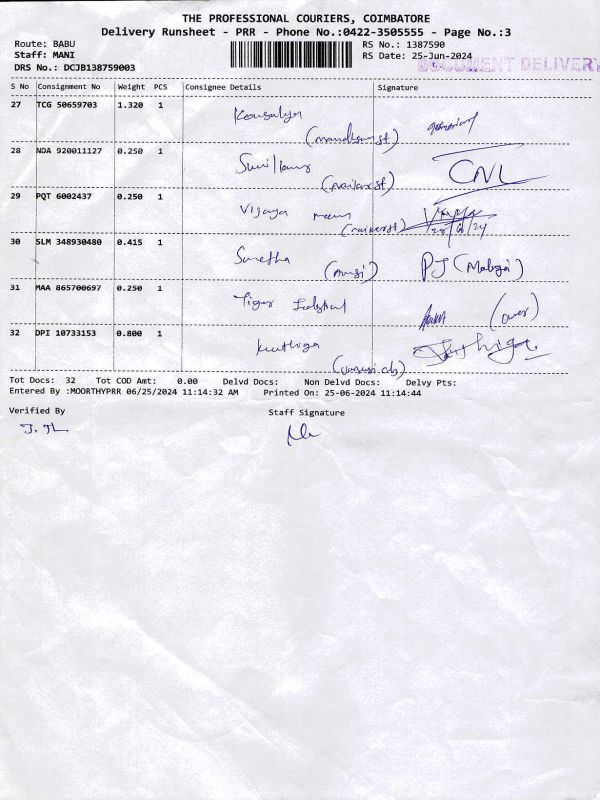 THE PROFESSIONAL COURIERS, COIMBATORE
Delivery Runsheet - PRR - Phone No.:0422-3505555 - Page No.:3
Route: BABU
Staff: MANI
DRS No.: DCJB138759003
RS No.: 1387590
RS Date: 25-Jun-2024
DOCUMENT DELIVERY
S No Consignment No Weight PCS Consignee Details Signature
27 TCG 50659703 1.320 1 Kousalya
28 NDA 920011127 0.250 1 CNL
29 PQT 6002437 0.250 1 Vijaya
25/6/24
30 SLM 348930480 0.415 1 Smetha PJ
31 MAA 865700697 0.250 1 Tiger
32 DPI 10733153 0.800 1
Tot Docs: 32 Tot COD Amt: 0.00 Delvd Docs: Non Delvd Docs: Delvy Pts:
Entered By :MOORTHYPRR 06/25/2024 11:14:32 AM Printed On: 25-06-2024 11:14:44
Verified By Staff Signature